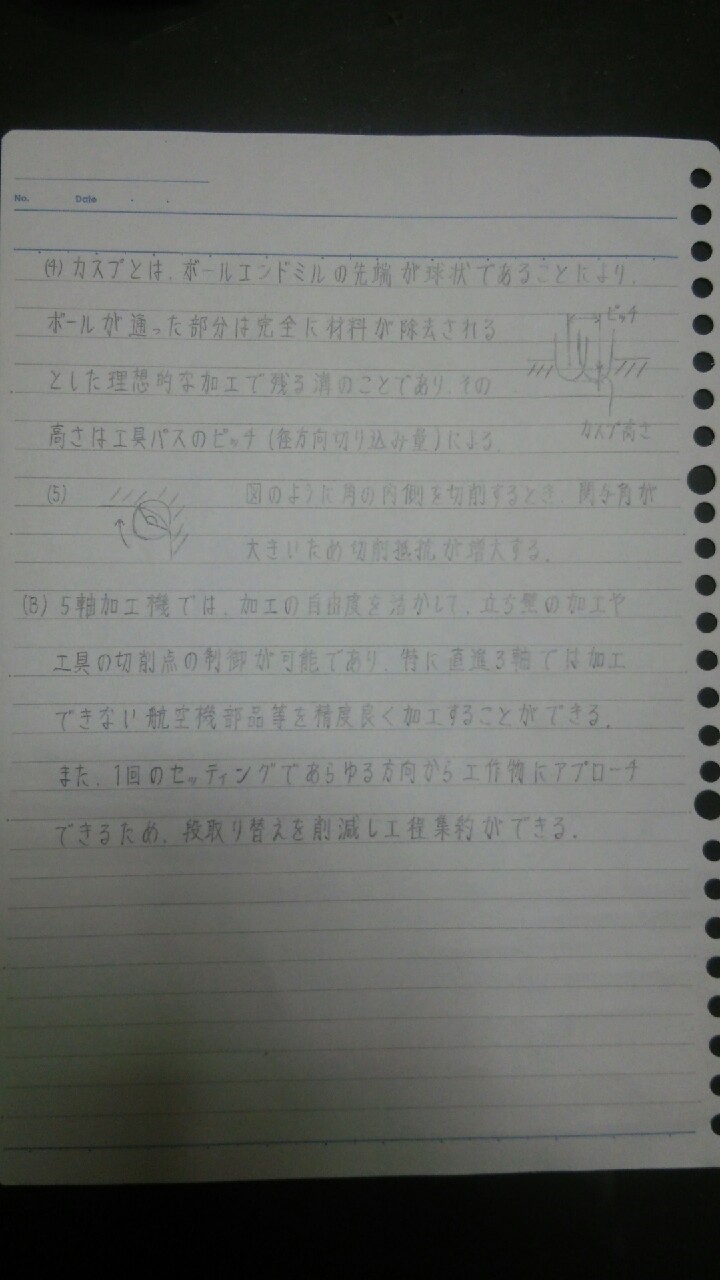 No.
Date
(4) カスプとは、ボールエンドミルの先端が球状であることにより、
ボールが通った部分は完全に材料が除去される
とした理想的な加工で残る溝のことであり、その
高さは工具パスのピッチ(径方向切り込み量)による。
ピッチ
カスプ高さ
(5) 図のように角の内側を切削するとき、関与角が
大きいため切削抵抗が増大する。
(B) 5軸加工機では、加工の自由度を活かして、立ち壁の加工や
工具の切削点の制御が可能であり、特に直進3軸では加工
できない航空機部品等を精度良く加工することができる。
また、1回のセッティングであらゆる方向から工作物にアプローチ
できるため、段取り替えを削減し工程集約ができる。